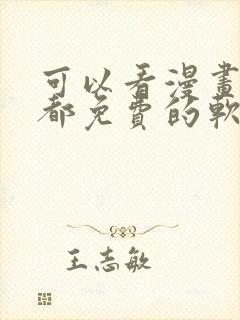 可以看漫畫
都免費的軟
王志敏